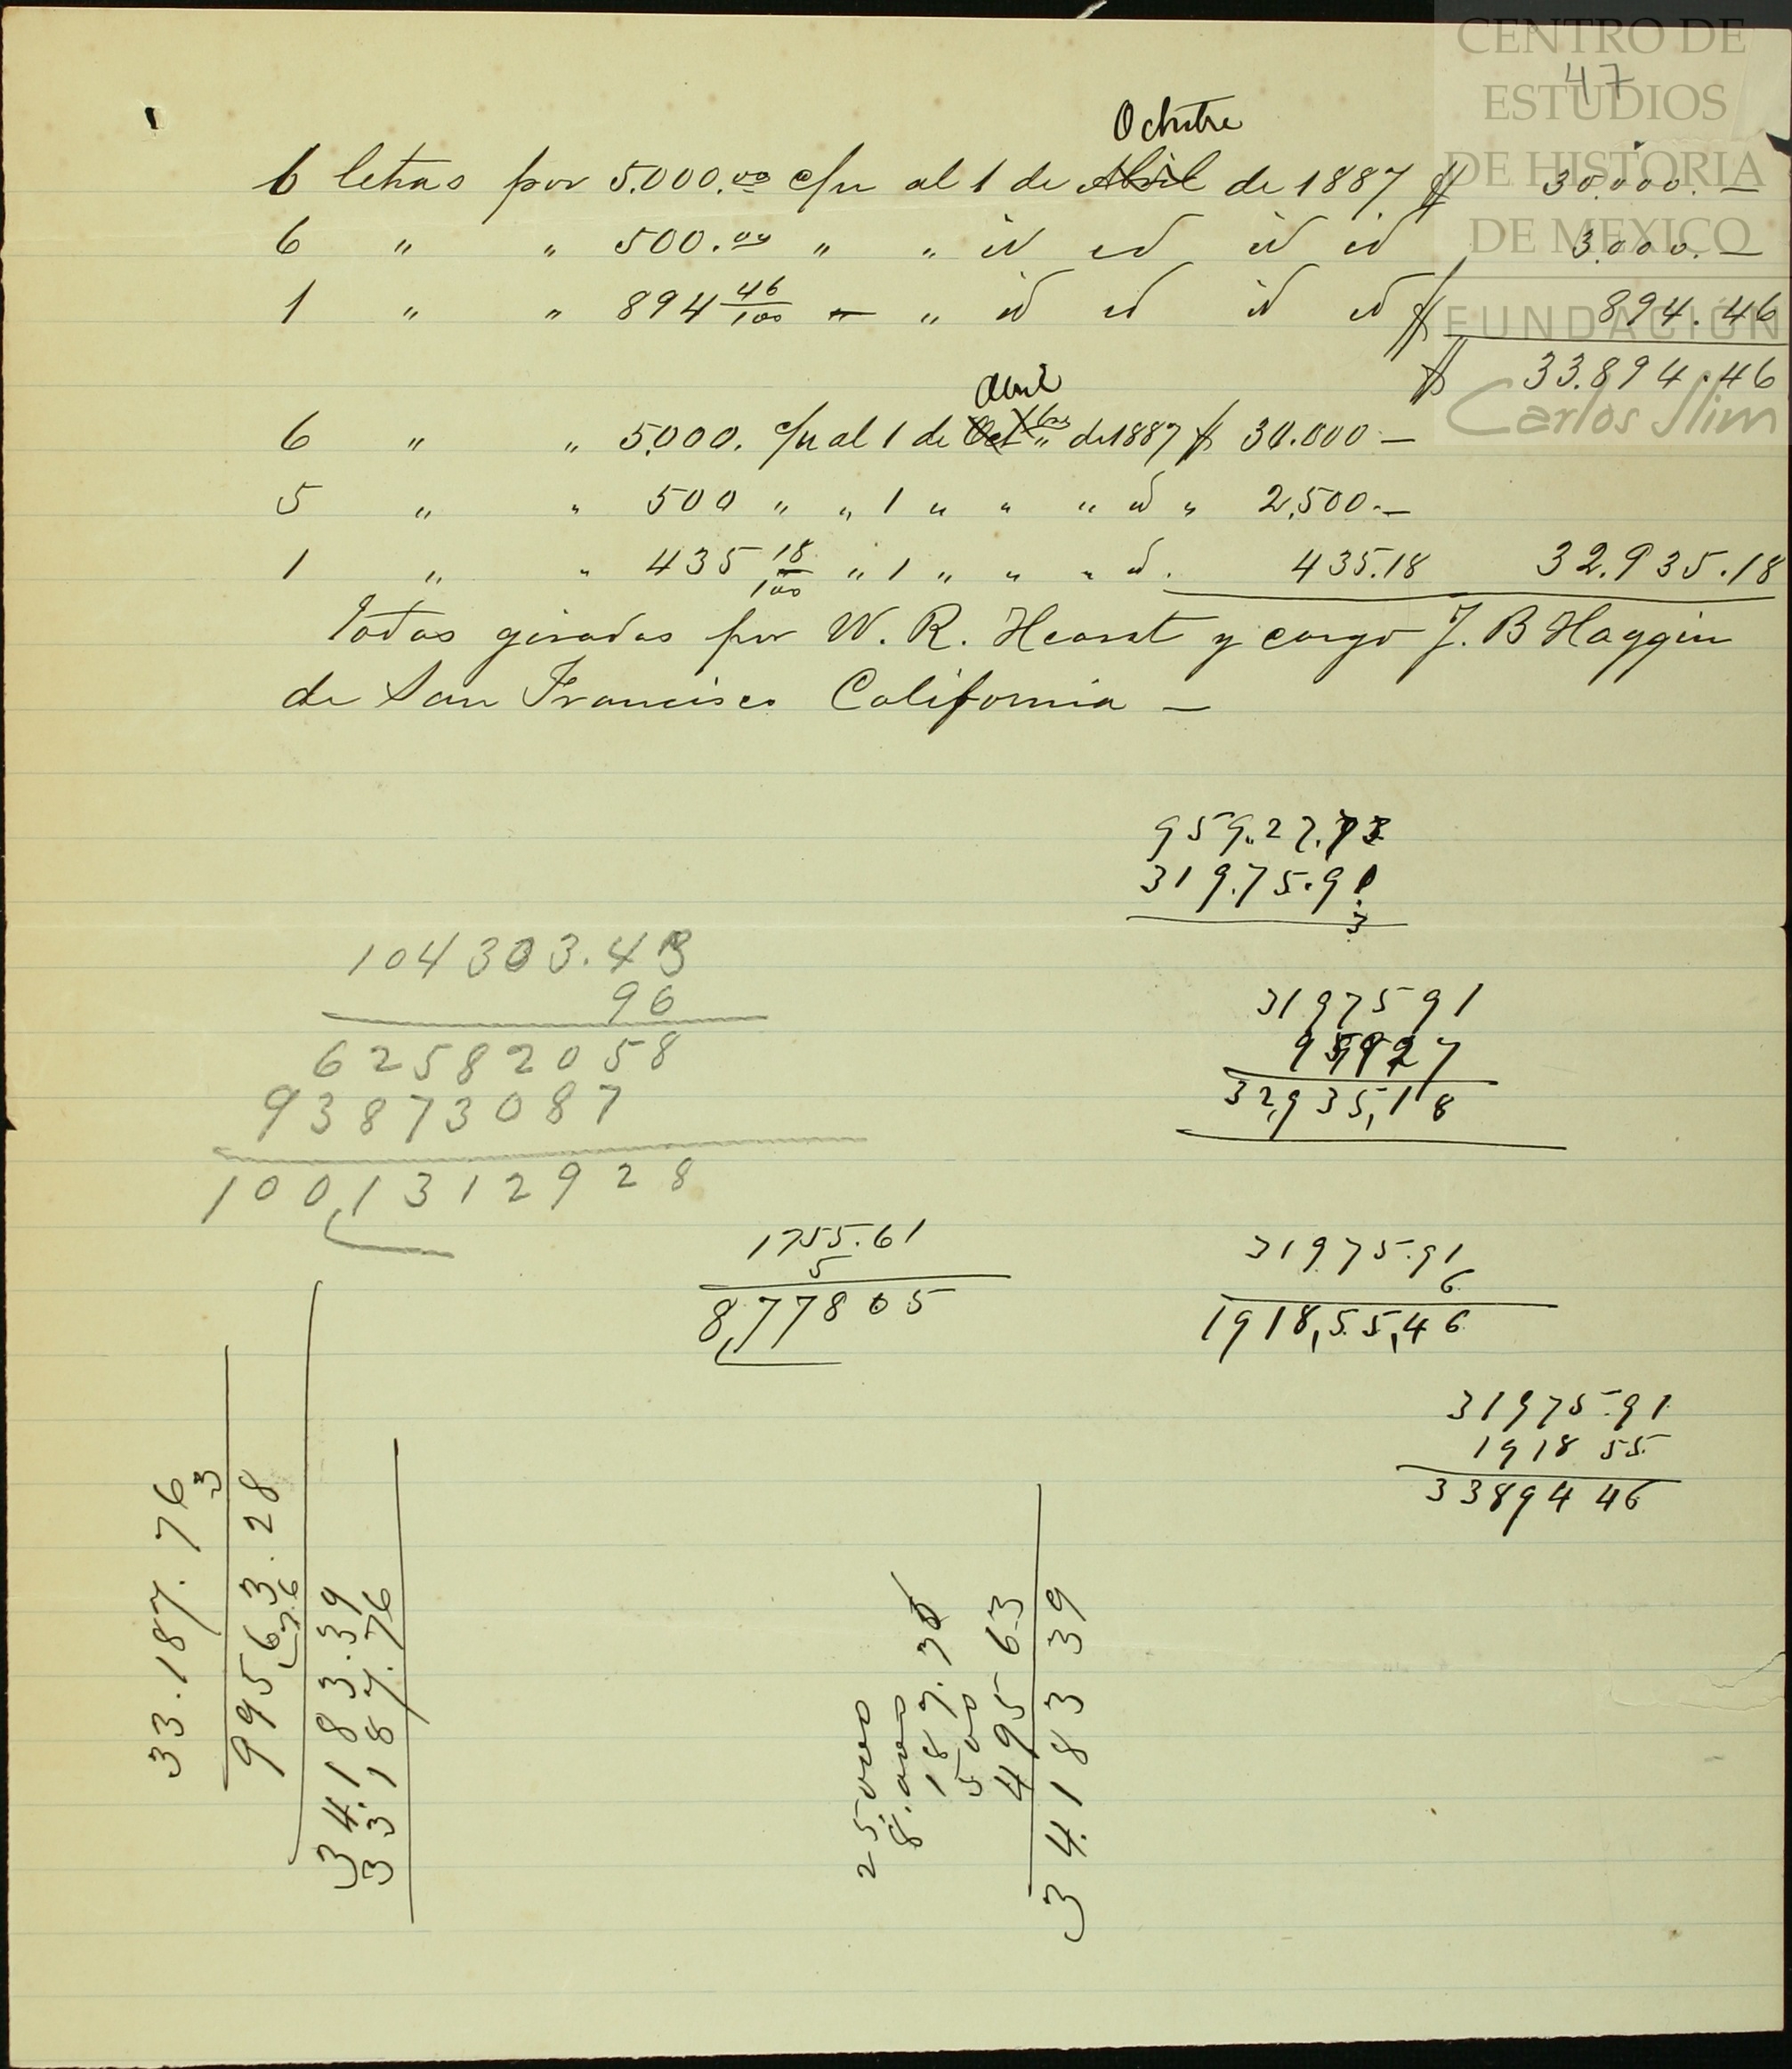 CENTRO DE
47
ESTUDIOS
DE HISTORIA
DE MEXICO
FUNDACIÓN
Carlos Slim
Octubre
6 letras por 5.000.00 c/u al 1 de Abril de 1887 $ 30.000.—
6 " " 500.00 " " id id id id 3.000.—
1 " " 894 46/100 — " id id id id $ 894.46
$ 33.894.46
Abril
6 " " 5.000. c/u al 1 de Oct de 1887 $ 30.000—
5 " " 500 " " 1 " " " id " 2.500.—
1 " " 435 18/100 " 1 " " " id. 435.18 32.935.18
Todas giradas por W. R. Hearst y cargo J. B Haggin
de San Francisco California —
959.27.73
319.75.91
3
104303.43
96
62582058
93873087
100,1312928
3197591
95927
32,935,18
1755.61
5
8,77805
31975.91
6
1918,55,46
31975.91
1918 55
33894 46
33.187.76
3
99563.28
34.183.39
33 187.76
25.000
8.000
187.76
500
495 63
34.183 39